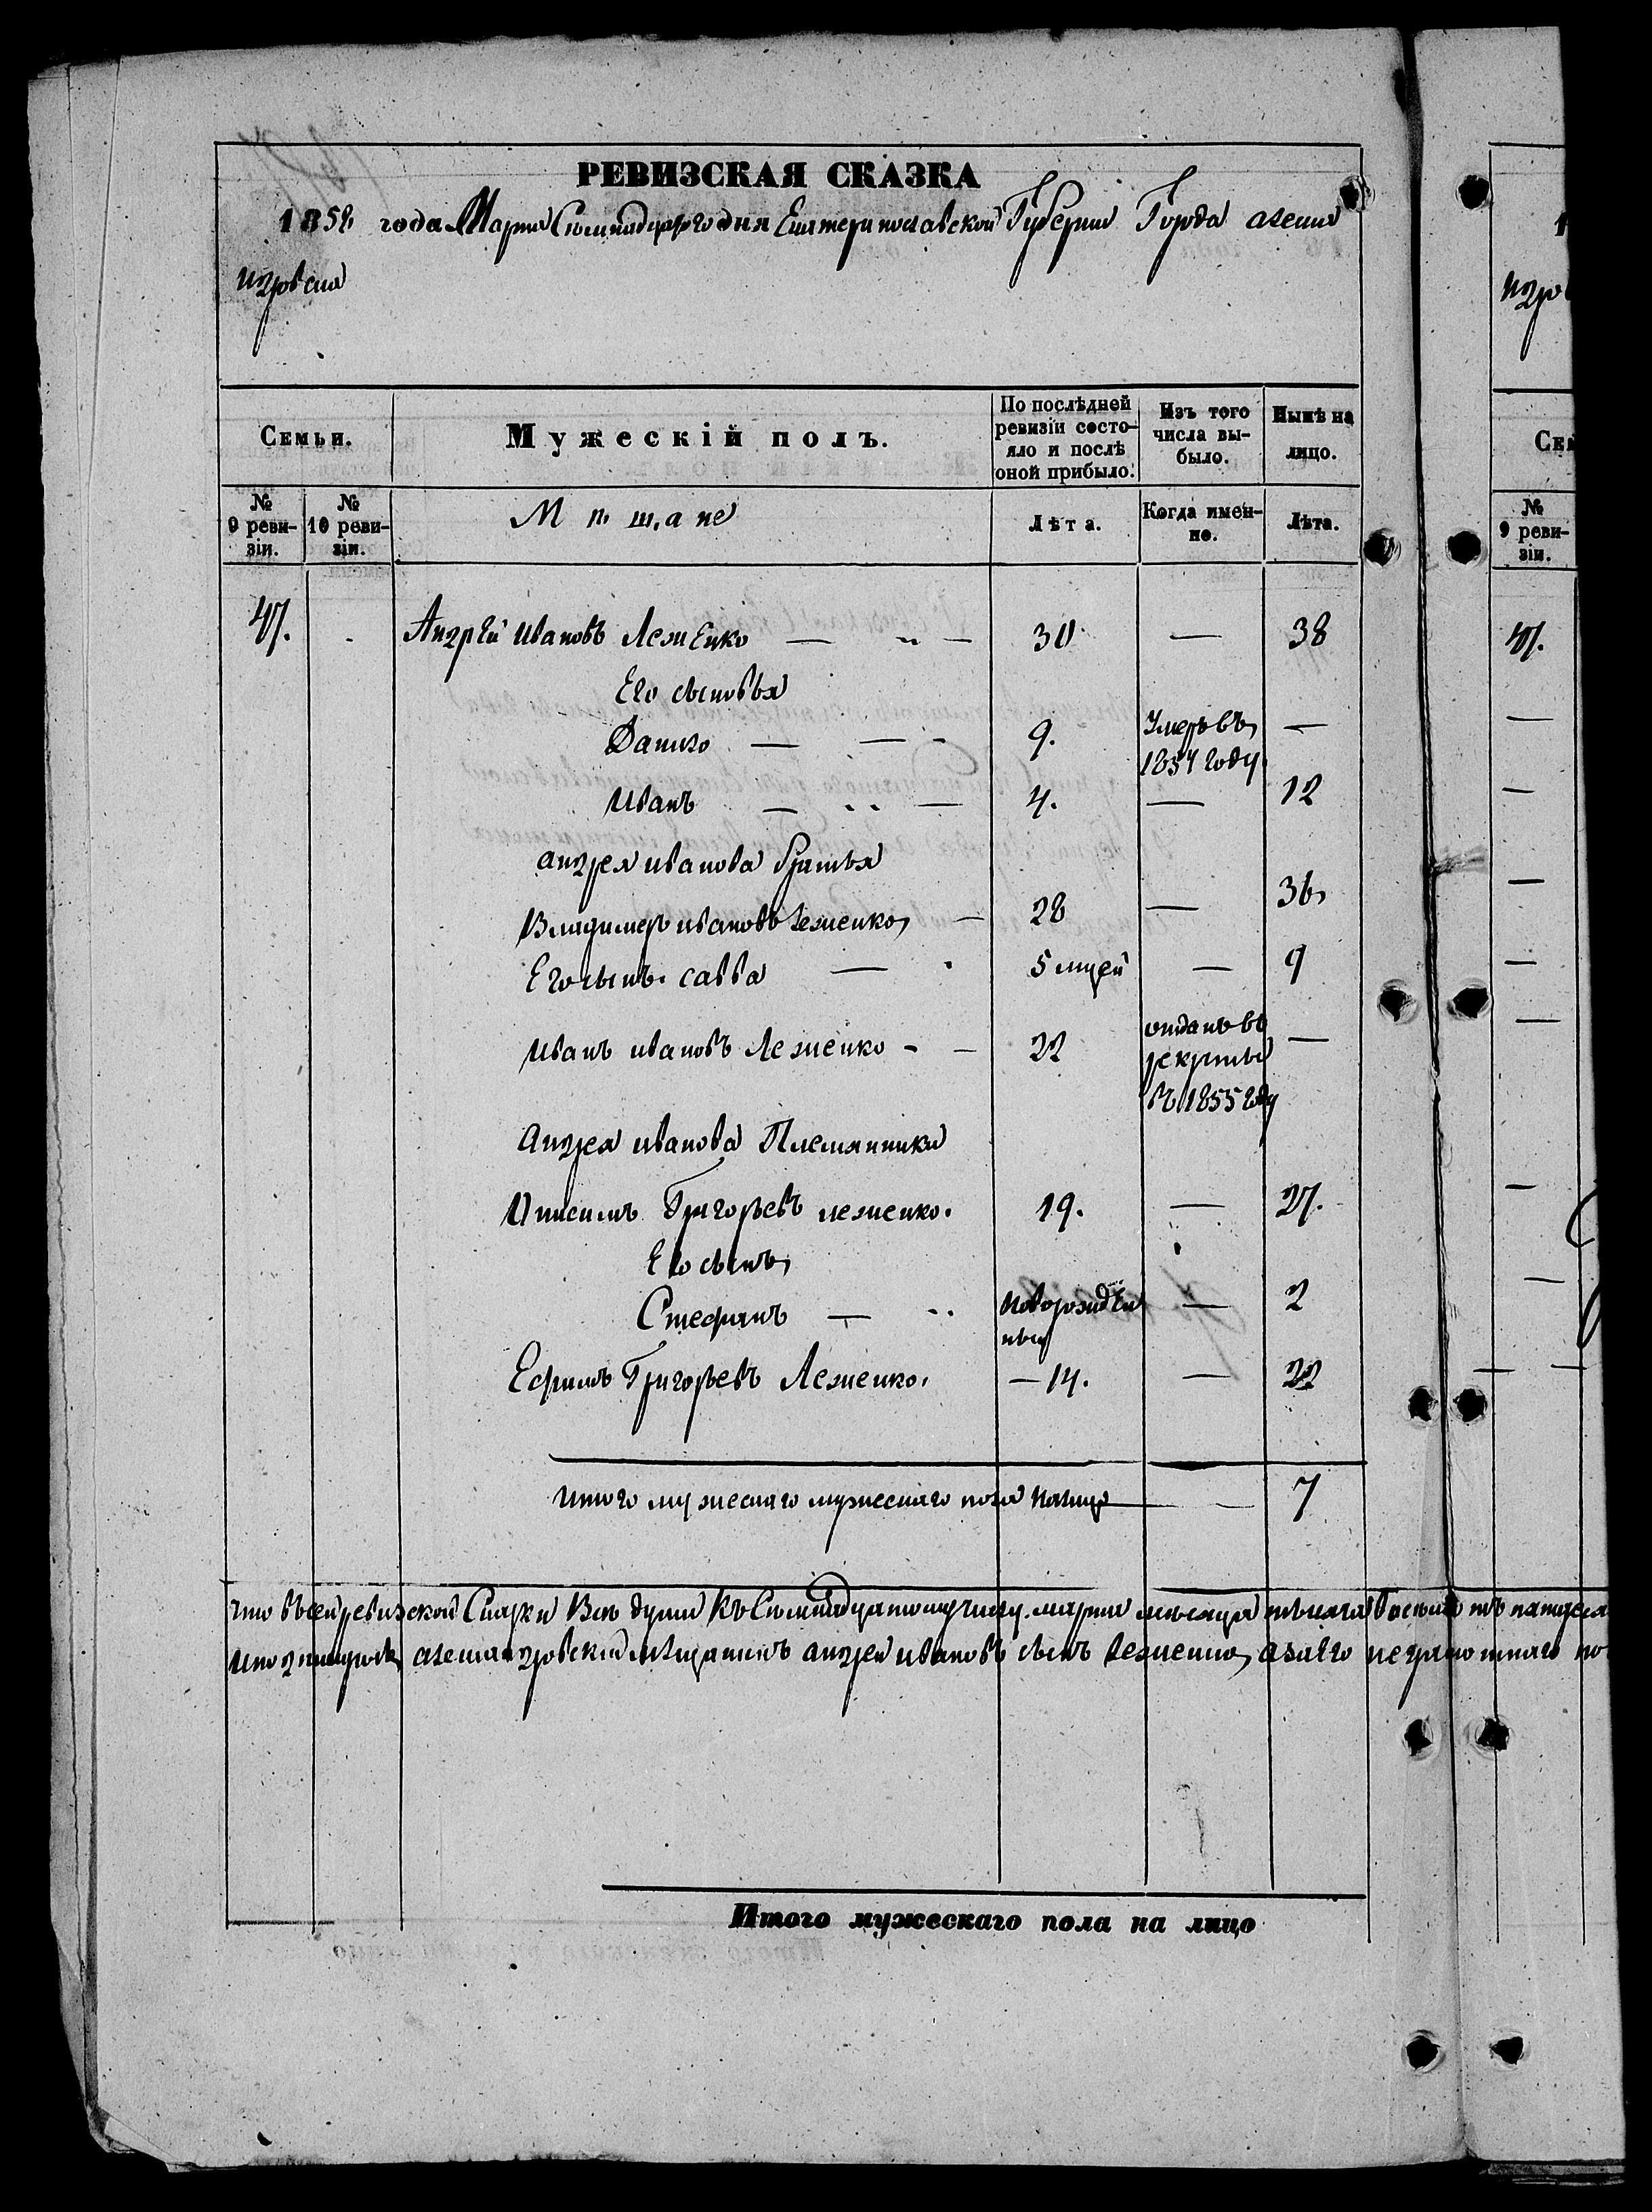 РЕВИЗСКАЯ СКАЗКА
1858 года Марта Семнадцатого дня Екатеринославской Губернии Города алекса
ндровска
Семьи.
Мужескій полъ.
По послѣдней ревизіи состояло и послѣ оной прибыло.
Изъ того числа выбыло.
Нынѣ на лицо.
№ 9 ревизіи.
№ 10 ревизіи.
Мѣщане
Лѣта.
Когда именно.
Лѣта.
47. Андрѣй Ивановъ Леженко — — 30 — 38
Его сыновья
Данило — — 9. Умеръ въ 1854 году —
Иванъ — — 4. — 12
андрея иванова братья
Владимеръ ивановъ Леженко — 28 — 36
Его сынъ савва — 5 мцей — 9
Иванъ ивановъ Леженко - — 22 отданъ въ рекруты въ 1855 году —
Андрея иванова Племянники
Григорьевъ леженко. 19. — 27.
Его сынъ
Стефанъ — новорожден ный — 2
Ефимъ Григорьевъ Леженко. — 14. — 22
итого мужескаго мужескаго пола налицо — — 7
что всей ревизской Сказки Все души Къ Семнадцатому числу марта месяца тысяча восемь сотъ пятдеся
алешандровский мѣщанинъ андрей ивановъ сынъ Леженко, а за его неграмотнаго по
Итого мужескаго пола на лицо
1
ндро
Сем
№ 9 ревизіи.
47.